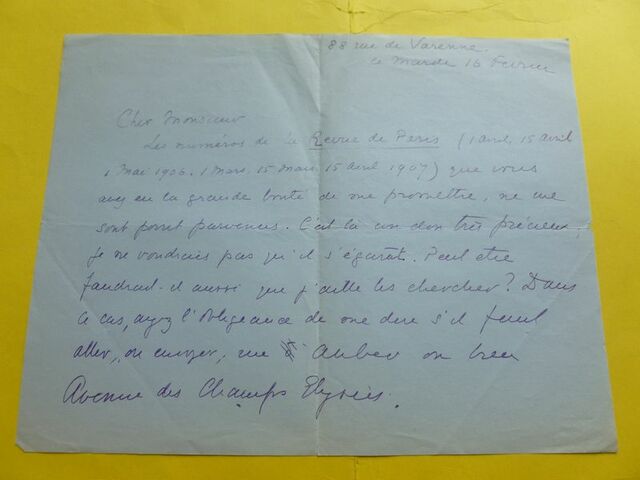 88 rue de Varenne.
ce Mardi 16 Fevrier
Cher Monsieur
Les numéros de la Revue de Paris (1 avril, 15 avril
1 Mai 1906. 1 Mars, 15 Mars, 15 avril 1907) que vous
avez eu la grande bonté de me promettre, ne me
sont point parvenus. C'est là un don très précieux,
je ne voudrais pas qu'il s'égarât. Peut etre
faudrait-il aussi que j'aille les chercher? Dans
ce cas, ayez l'obligeance de me dire s'il faut
aller, ou envoyer, rue Auber ou bien
Avenue des Champs Elysées.